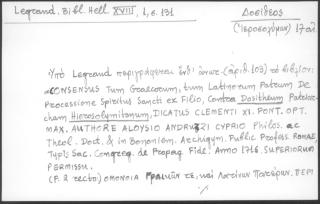 Legrand. Bibl. Hell. XVIII, 1, σ. 131
Δοσίθεος
(Ἱεροσολύμων) 17 αἰ.
Ὑπὸ Legrand περιγράφεται (ἀριθ. 103) τὸ βιβλίον:
«CONSENSUS Tum Graecorum, tum Latinorum Patrum De
Processione Spiritus Sancti ex Filio, Contra Dositheum Patriar-
cham Hierosolymitanum, DICATUS CLEMENTI XI. PONT. OPT.
MAX. AUTHORE ALOYSIO ANDRUZZI CYPRIO Philos. ac
Theol. Doct. & in Bononien. Archigym. Public. Profess. ROMAE
Typis Sac. Congreg. de Propag. Fide. Anno 1716. SUPERIORUM
PERMISSU.
(F. 2 recto) ΟΜΟΝΟΙΑ Γραικῶν τε, καὶ Λατίνων Πατέρων. ΠΕΡΙ